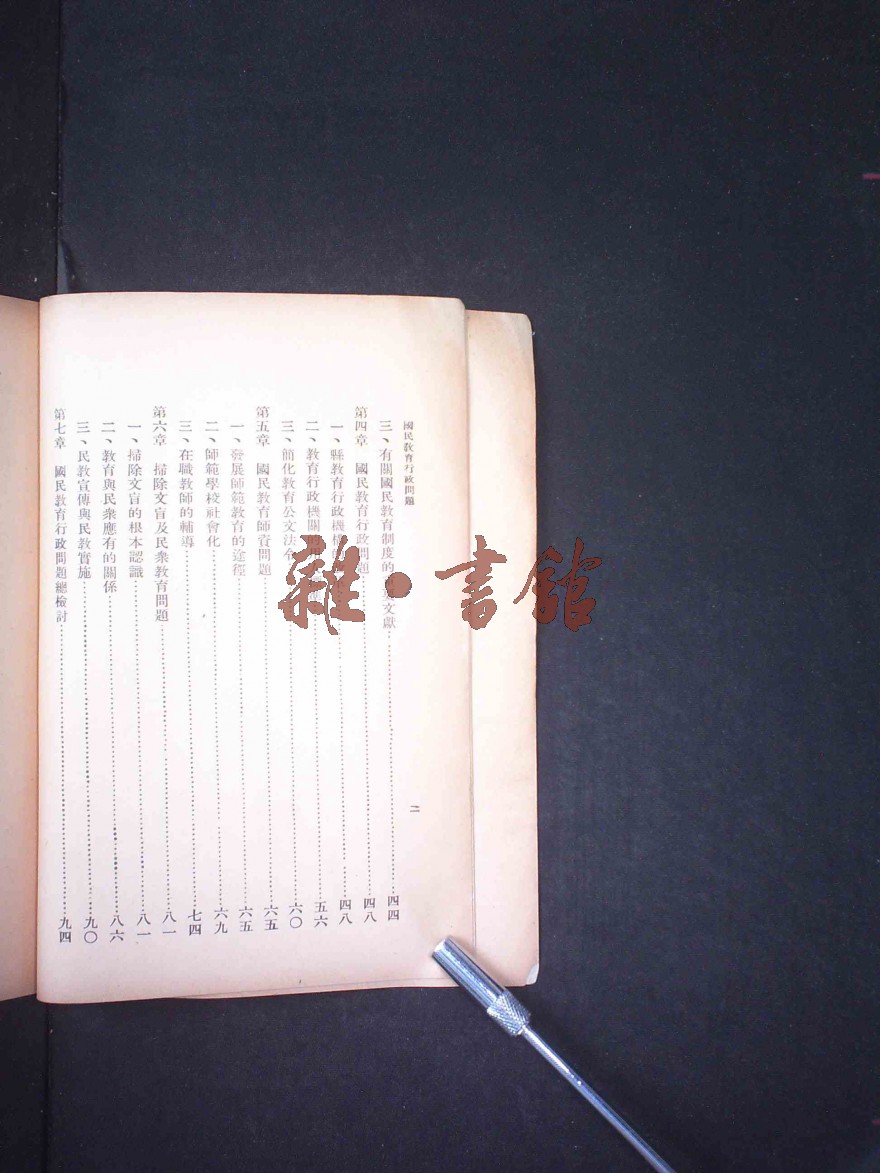 國民教育行政問題
二
三、有關國民教育制度的文獻……四四
第四章 國民教育行政問題……四八
一、縣教育行政機構的……四八
二、教育行政機關的……五六
三、簡化教育公文法令……六〇
第五章 國民教育師資問題……六五
一、發展師範教育的途徑……六五
二、師範學校社會化……六九
三、在職教師的輔導……七四
第六章 掃除文盲及民衆教育問題……八一
一、掃除文盲的根本認識……八一
二、教育與民衆應有的關係……八六
三、民教宣傳與民教實施……九〇
第七章 國民教育行政問題總檢討……九四
雜·書館